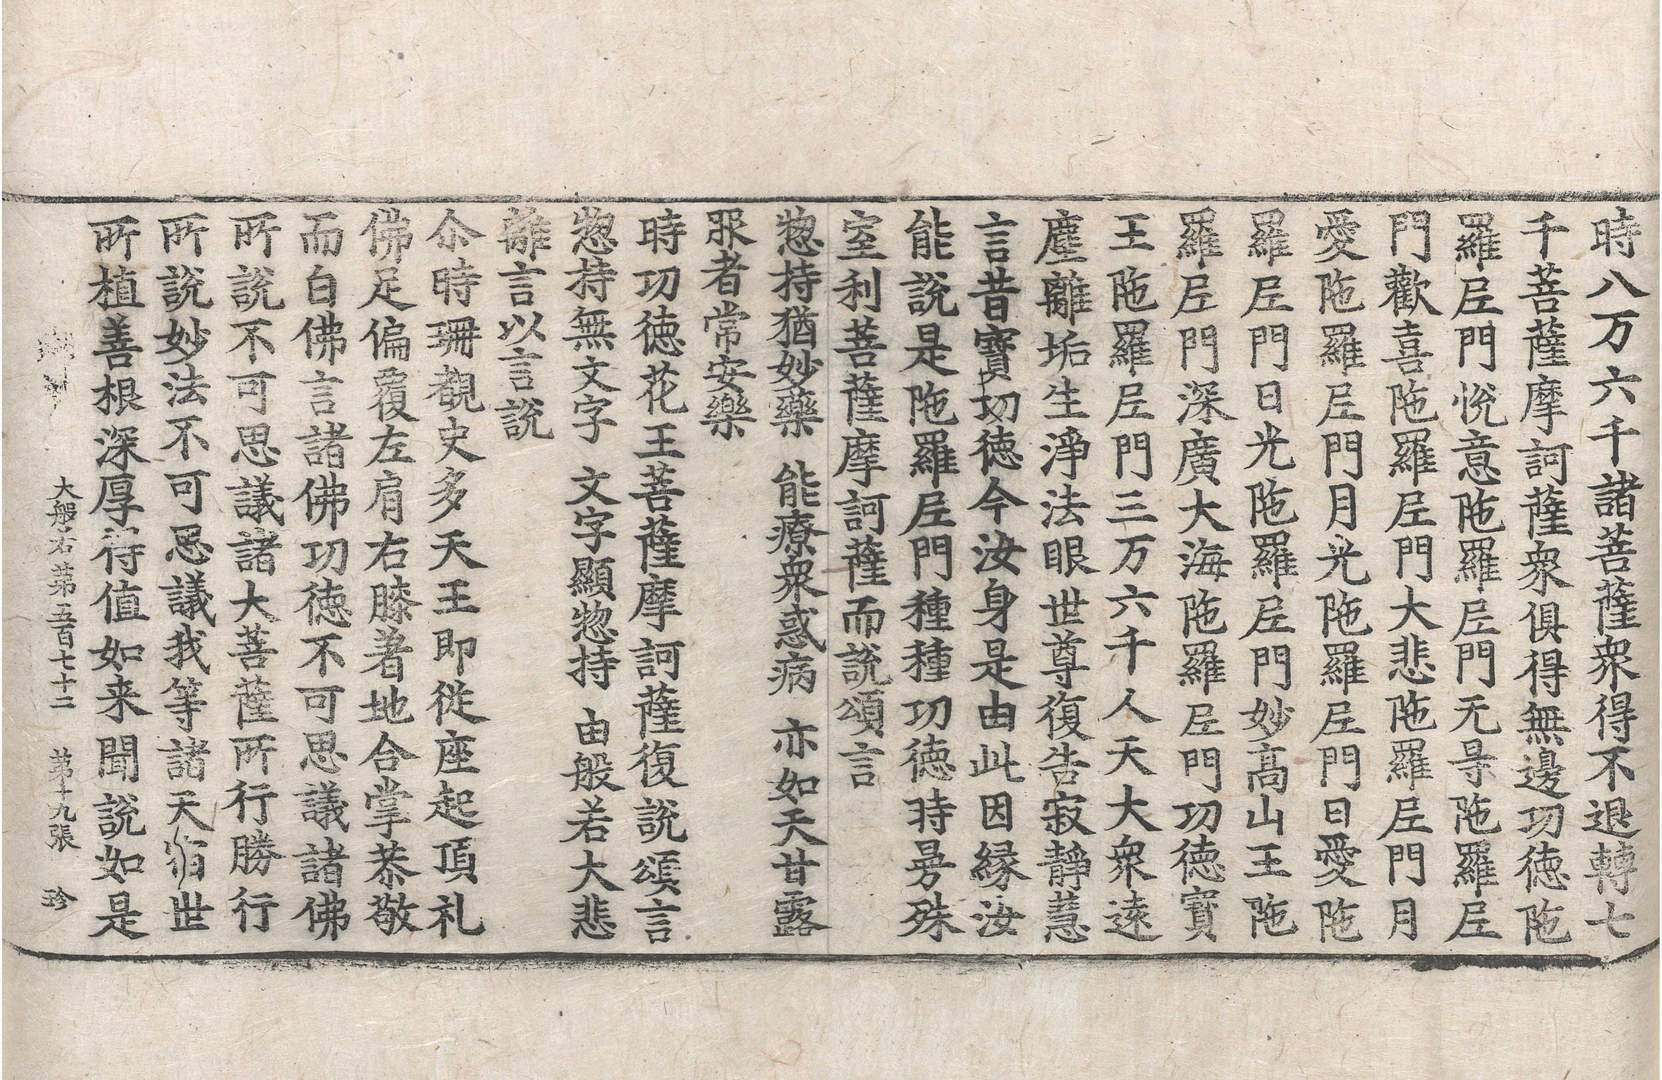 時八万六千諸菩薩衆得不退轉七
千菩薩摩訶薩衆俱得無邊功徳陁
羅𡰱門悅意陁羅𡰱門无㝵陁羅𡰱
門歡喜陁羅𡰱門大悲陁羅𡰱門月
愛陁羅𡰱門月光陁羅𡰱門日愛陁
羅𡰱門日光陁羅𡰱門妙髙山王陁
羅𡰱門深廣大海陁羅𡰱門功徳寶
王陁羅𡰱門三万六千人天大衆逺
塵離垢生淨法眼世尊復告寂靜慧
言昔寶功徳今汝身是由此因縁汝
能說是陁羅𡰱門種種功徳時㬅殊
室利菩薩摩訶薩而說頌言
惣持猶妙藥 能療衆惑病 亦如天甘露
服者常安樂
時功徳花王菩薩摩訶薩復說頌言
惣持無文字 文字顯惣持 由般若大悲
離言以言說
尒時珊覩史多天王即從座起頂礼
佛足偏覆左肩右膝著地合掌恭敬
而白佛言諸佛功徳不可思議諸佛
所說不可思議諸大菩薩所行勝行
所說妙法不可思議我等諸天宿世
所植善根深厚得值如来聞說如是
大般若第五百七十二 第十九張 珍